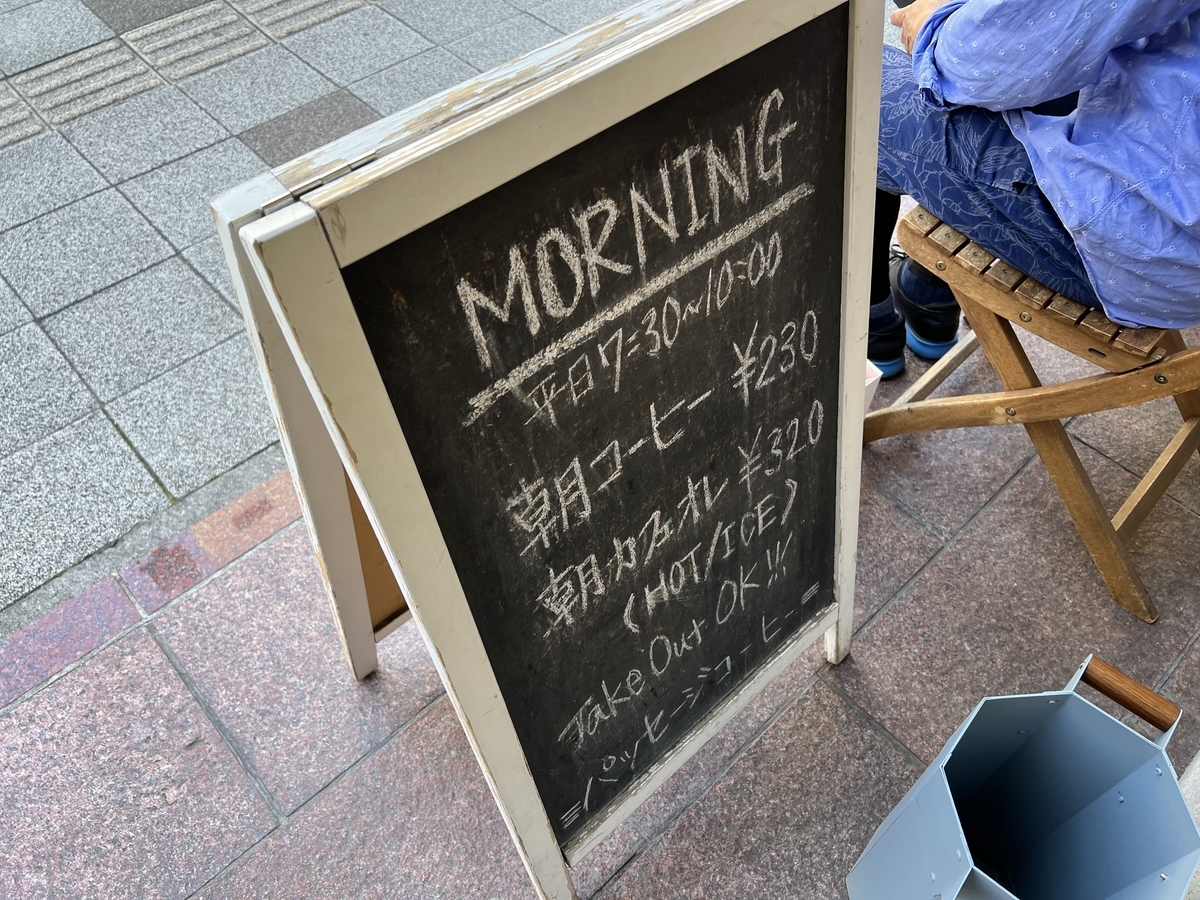 MORNING
平日7:30~10:00
朝コーヒー ¥230
朝カフェオレ ¥320
(HOT/ICE)
Take Out OK!!!
=パッセージコーヒー=